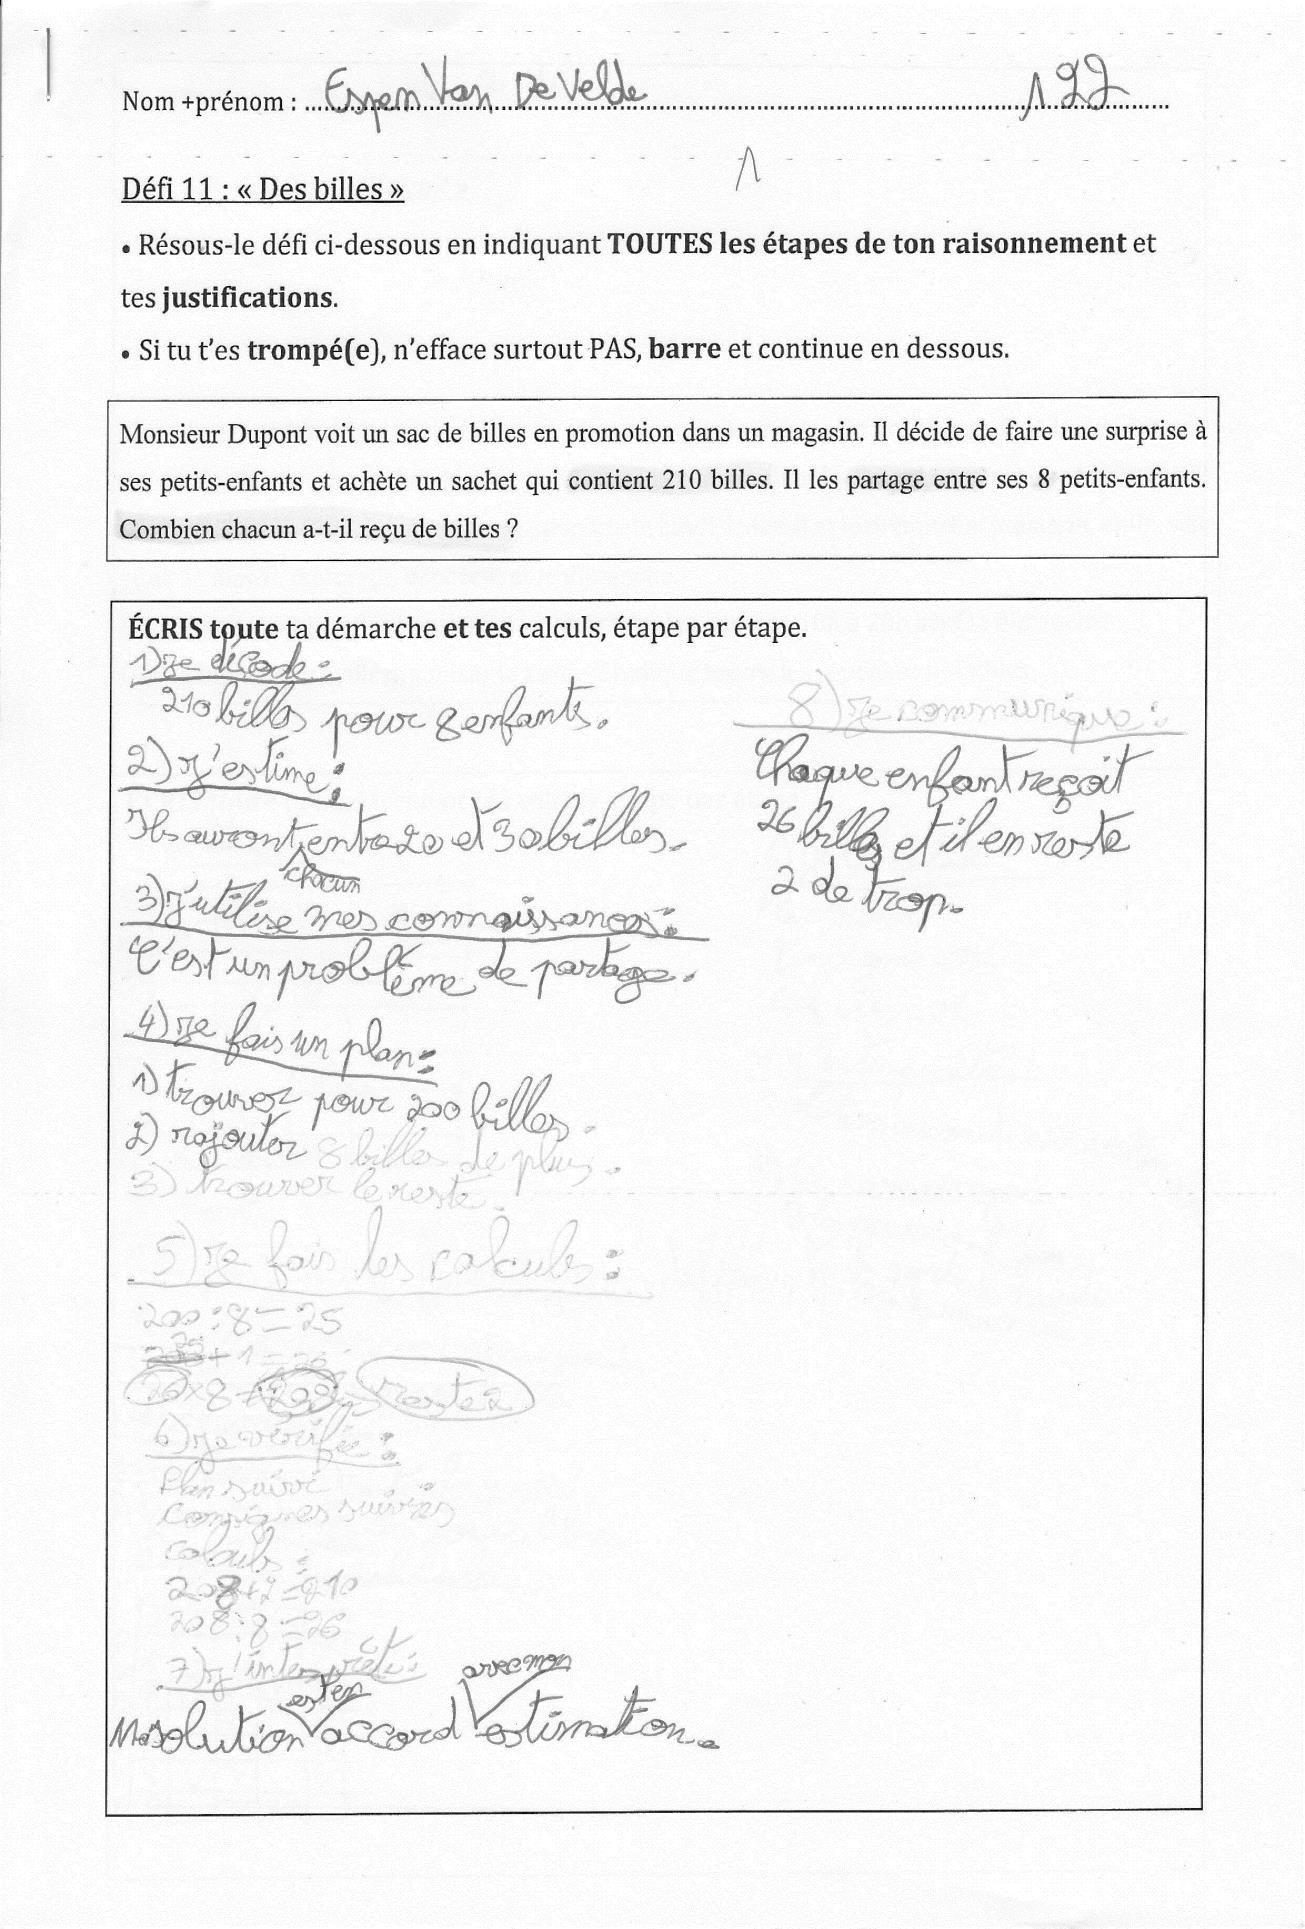 Nom +prénom : Espen Van De Velde 122
1
Défi 11 : « Des billes »
• Résous-le défi ci-dessous en indiquant TOUTES les étapes de ton raisonnement et
tes justifications.
• Si tu t'es trompé(e), n'efface surtout PAS, barre et continue en dessous.
Monsieur Dupont voit un sac de billes en promotion dans un magasin. Il décide de faire une surprise à
ses petits-enfants et achète un sachet qui contient 210 billes. Il les partage entre ses 8 petits-enfants.
Combien chacun a-t-il reçu de billes ?
ÉCRIS toute ta démarche et tes calculs, étape par étape.
1) Je décode :
210 billes pour 8 enfants.
2) J'estime :
Ils auront entre 20 et 30 billes.
chacun
3) J'utilise mes connaissances :
C'est un problème de partage.
4) Je fais un plan :
1) trouver pour 200 billes.
2) rajouter 8 billes de plus.
3) trouver le reste.
5) Je fais les calculs :
200 : 8 = 25
25 + 1 = 26
26 x 8 = 208 reste 2
6) Je vérifie :
Plan suivi
Consignes suivies
calculs :
208 + 2 = 210
208 : 8 = 26
7) J'interprète :
est en avec mon
Ma solution accord estimation.
8) Je communique :
Chaque enfant reçoit
26 billes et il en reste
2 de trop.